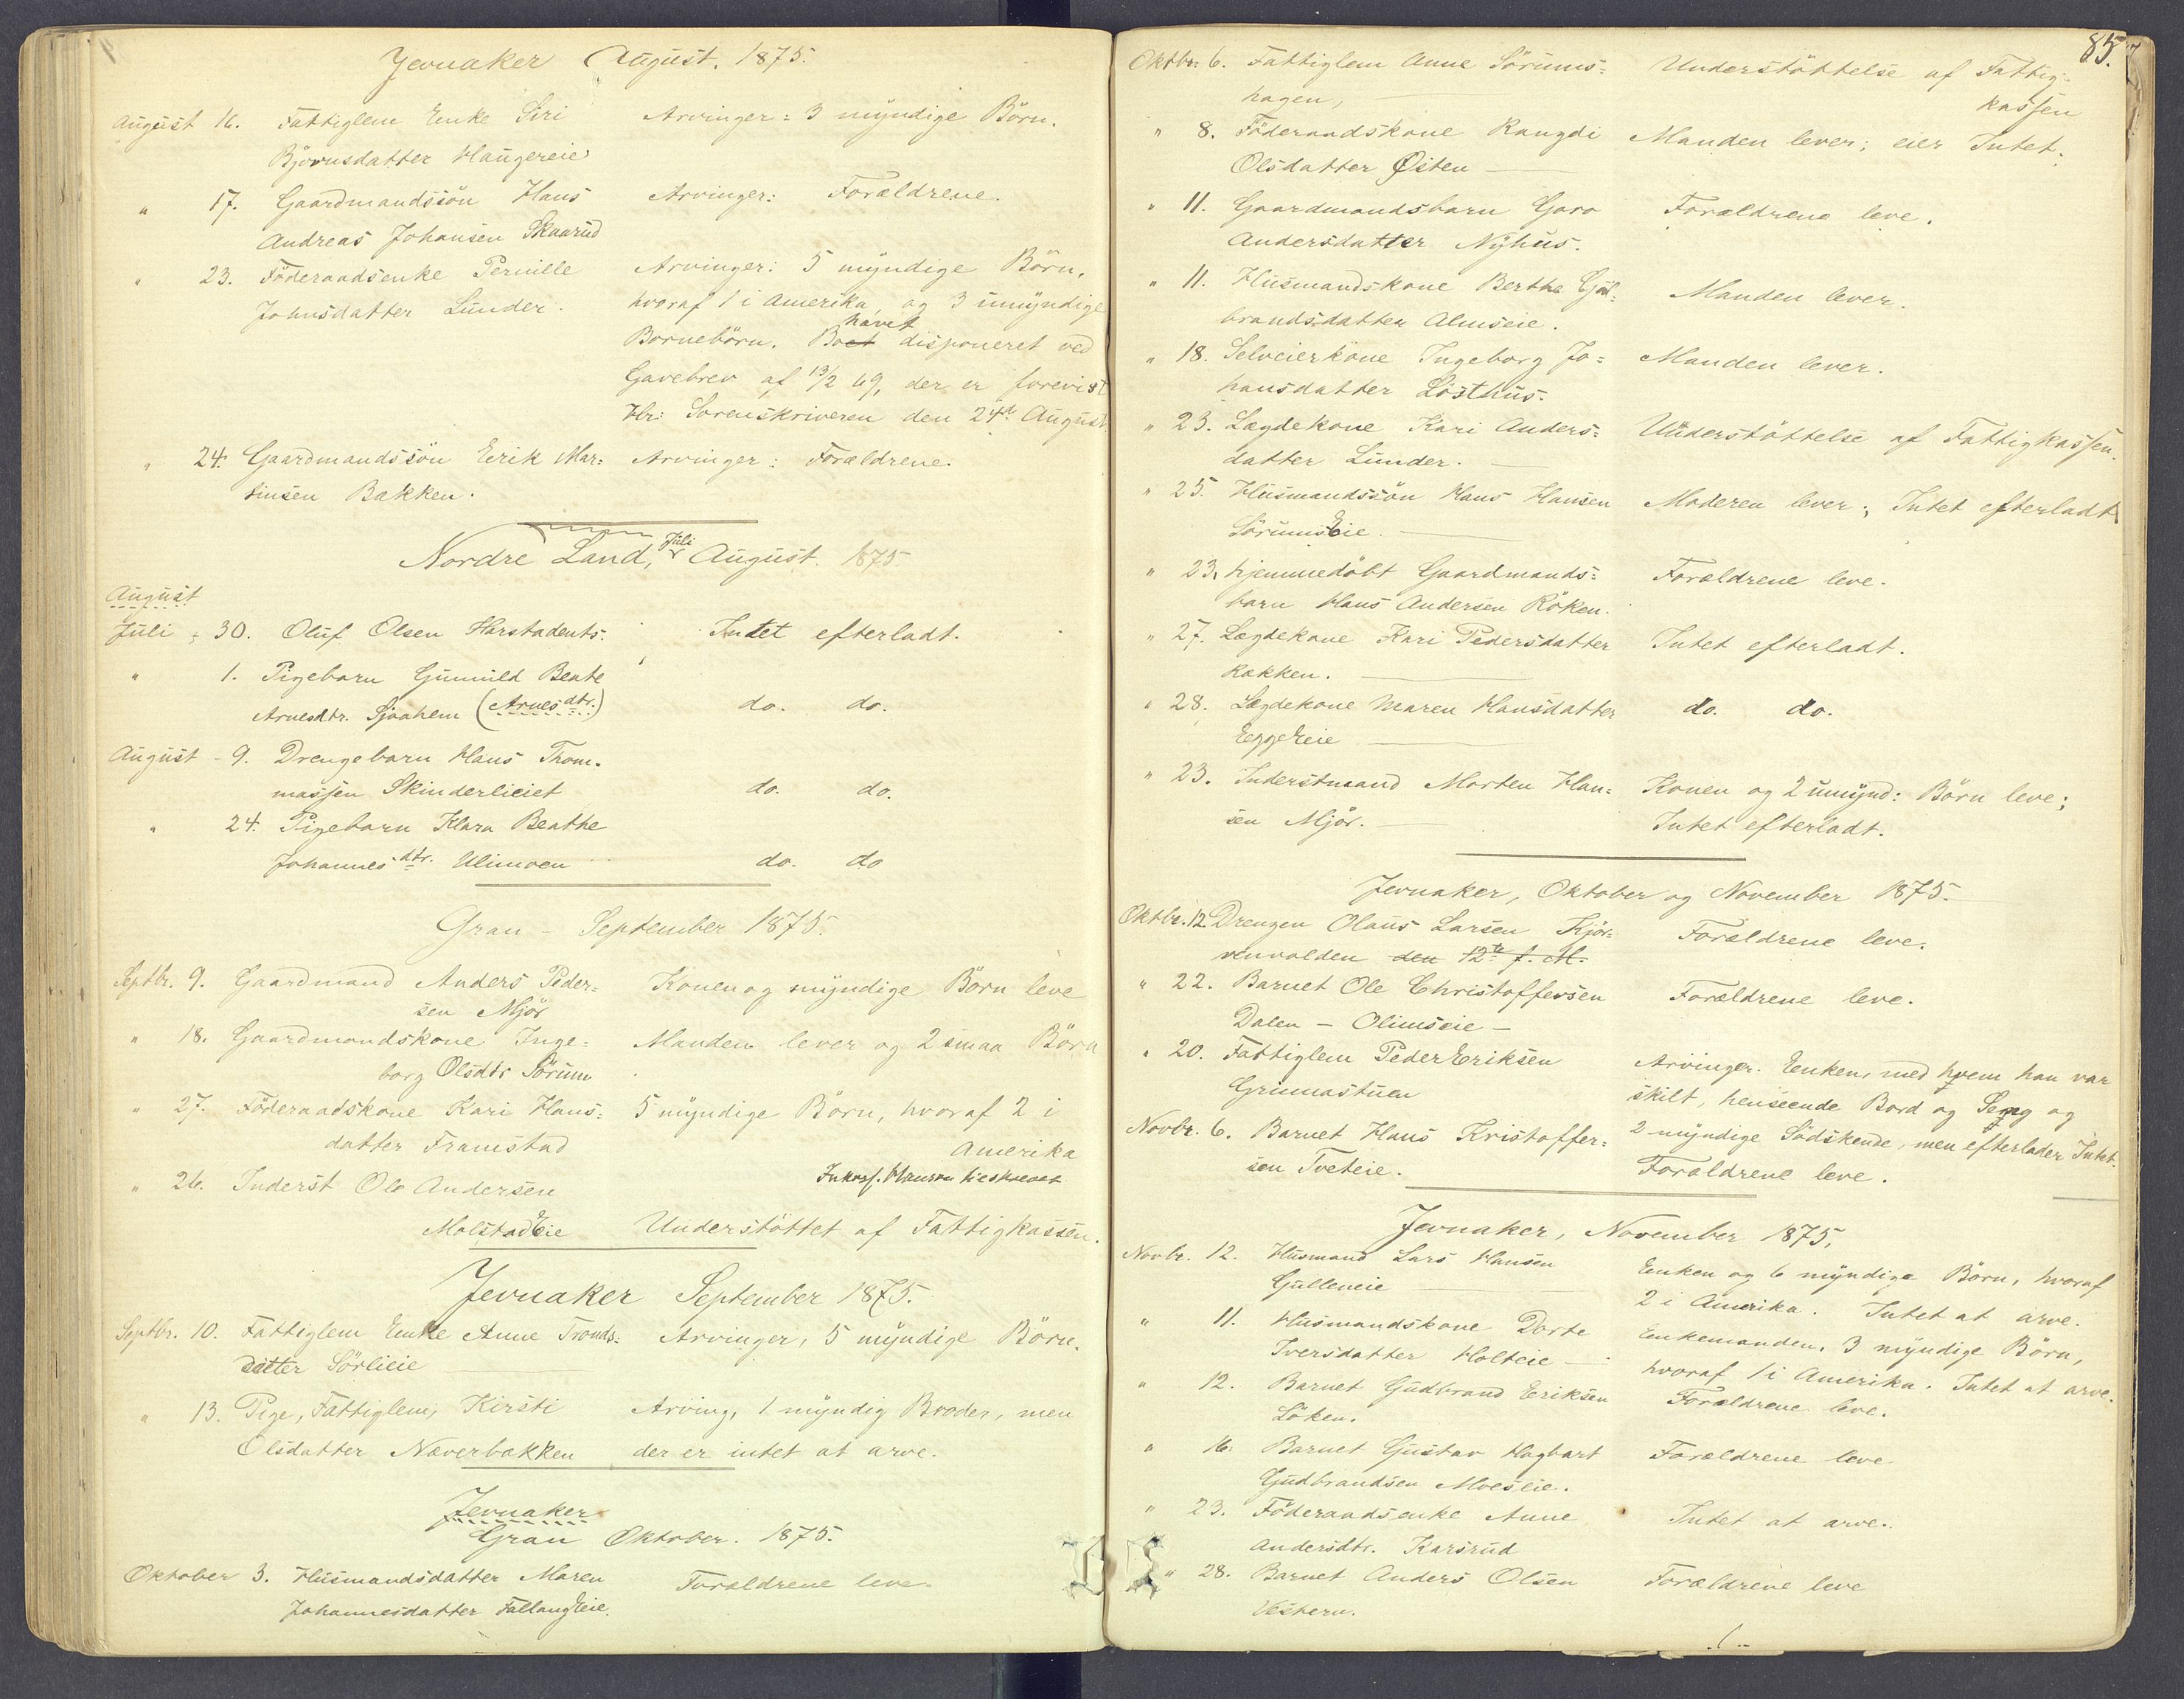 Jevnaker August. 1875.
August 16. Fattiglem Enke Siri Arvinger: 3 myndige Börn.
Björnsdatter Haugereie
" 17. Gaardmandssön Hans Arvinger: Forældrene.
Andreas Johansen Skaarud
" 23. Föderaadsenke Pernille Arvinger: 5 myndige Börn,
Johnsdatter Lunder. hvoraf 1 i Amerika, og 3 umyndige
havet
Bornebörn. Boet disponeret ved
Gavebrev af 13/2 69, der er forevist
Hr: Sorenskriveren den 24de August.
" 24. Gaardmandssön Eirik Mar= Arvinger: Forældrene.
tinsen Bakken.
Nordre Land, Juli August. 1875
August
Juli 30. Oluf Olsen Harstadents. Intet efterladt.
" 1. Pigebarn Gunnild Beate
Arnesdtr. Sjoahem (Arnesdtr.) do. do.
August - 9. Drengebarn Hans Thom.
massen Skinderlieiet do. do.
" 24. Pigebarn Klara Beathe
Johannesdtr. Ulimoen do. do
Gran - September 1875.
Septbr. 9. Gaardmand Anders Peder= Konen og myndige Börn leve
sen Mjör
" 18. Gaardmandskone Inge= Manden lever og 2 smaa Börn
borg Olsdtr Sörum
" 27. Föderaadskone Kari Hans= 5 myndige Börn, hvoraf 2 i
datter Framstad Amerika
" 26. Inderst Ole Andersen
Molstadeie Understöttet af Fattigkassen.
Jevnaker September 1875.
Septbr. 10. Fattiglem Enke Anne Tronds= Arvinger, 5 myndige Börn.
datter Sörlieie
" 13. Pige, Fattiglem, Kirsti Arving, 1 myndig Broder, men
Olsdatter Næverbakken der er intet at arve.
Jevnaker
Gran Oktober. 1875.
Oktober 3. Husmandsdatter Maren Forældrene leve.
Johannesdatter Fallangeie.
85.
Oktbr: 6. Fattiglem Anne Sörums= Understöttelse af Fattig-
hagen, kassen
" 8. Föderaadskone Rangdi Manden lever; eier Intet.
Olsdatter Østen
" 11. Gaardmandsbarn Goro Forældrene leve.
Andersdatter Nyhus.
" 11. Husmandskone Berthe Gul= Manden lever.
brandsdatter Almseie.
" 18. Selveierkone Ingeborg Jo= Manden lever.
hansdatter Lösthus.
" 23. Lægdekone Kari Anders= Understöttelse af Fattigkassen.
datter Lunder.
" 25. Husmandssön Hans Hansen Moderen lever; Intet efterladt
Sörumseie.
" 23. hjemmedöbt Gaardmands= Forældrene leve.
barn Hans Andersen Röken.
" 27. Lægdekone Kari Pedersdatter Intet efterladt.
Rækken.
" 28. Lægdekone Maren Hansdatter do. do.
Eggeeie
" 23. Inderstmand Morten Han= Konen og 2 umynd: Börn leve;
sen Mjör. Intet efterladt.
Jevnaker, Oktober og November 1875.
Oktbr. 12. Drengen Olaus Larsen Kjör= Forældrene leve.
venvolden den 12te f. M.
" 22. Barnet Ole Christoffersen Forældrene leve.
Dalen - Olimseie -
" 20. Fattiglem Peder Eriksen Arvinger. Enken, med hvem han var
Grinnastuen skilt, henseende Bord og Seng og
Novbr. 6. Barnet Hans Kristoffer= 2 myndige Södskende, men efterlader Intet.
sen Tveteie. Forældrene leve.
Jevnaker, November 1875,
Novbr. 12. Husmand Lars Hansen Enken og 6 myndige Börn, hvoraf
Gulleneie 2 i Amerika. Intet at arve.
" 11. Husmandskone Dorte Enkemanden, 3 myndige Börn,
Iversdatter Holteie hvoraf 1 i Amerika. Intet at arve.
" 12. Barnet Gudbrand Eriksen Forældrene leve.
Löken.
" 16. Barnet Gustav Hagbart Forældrene leve
Gudbrandsen Moeseie.
" 23. Föderaadsenke Anne Intet at arve.
Andersdtr. Karsrud
" 28. Barnet Anders Olsen Forældrene leve
Vestern.